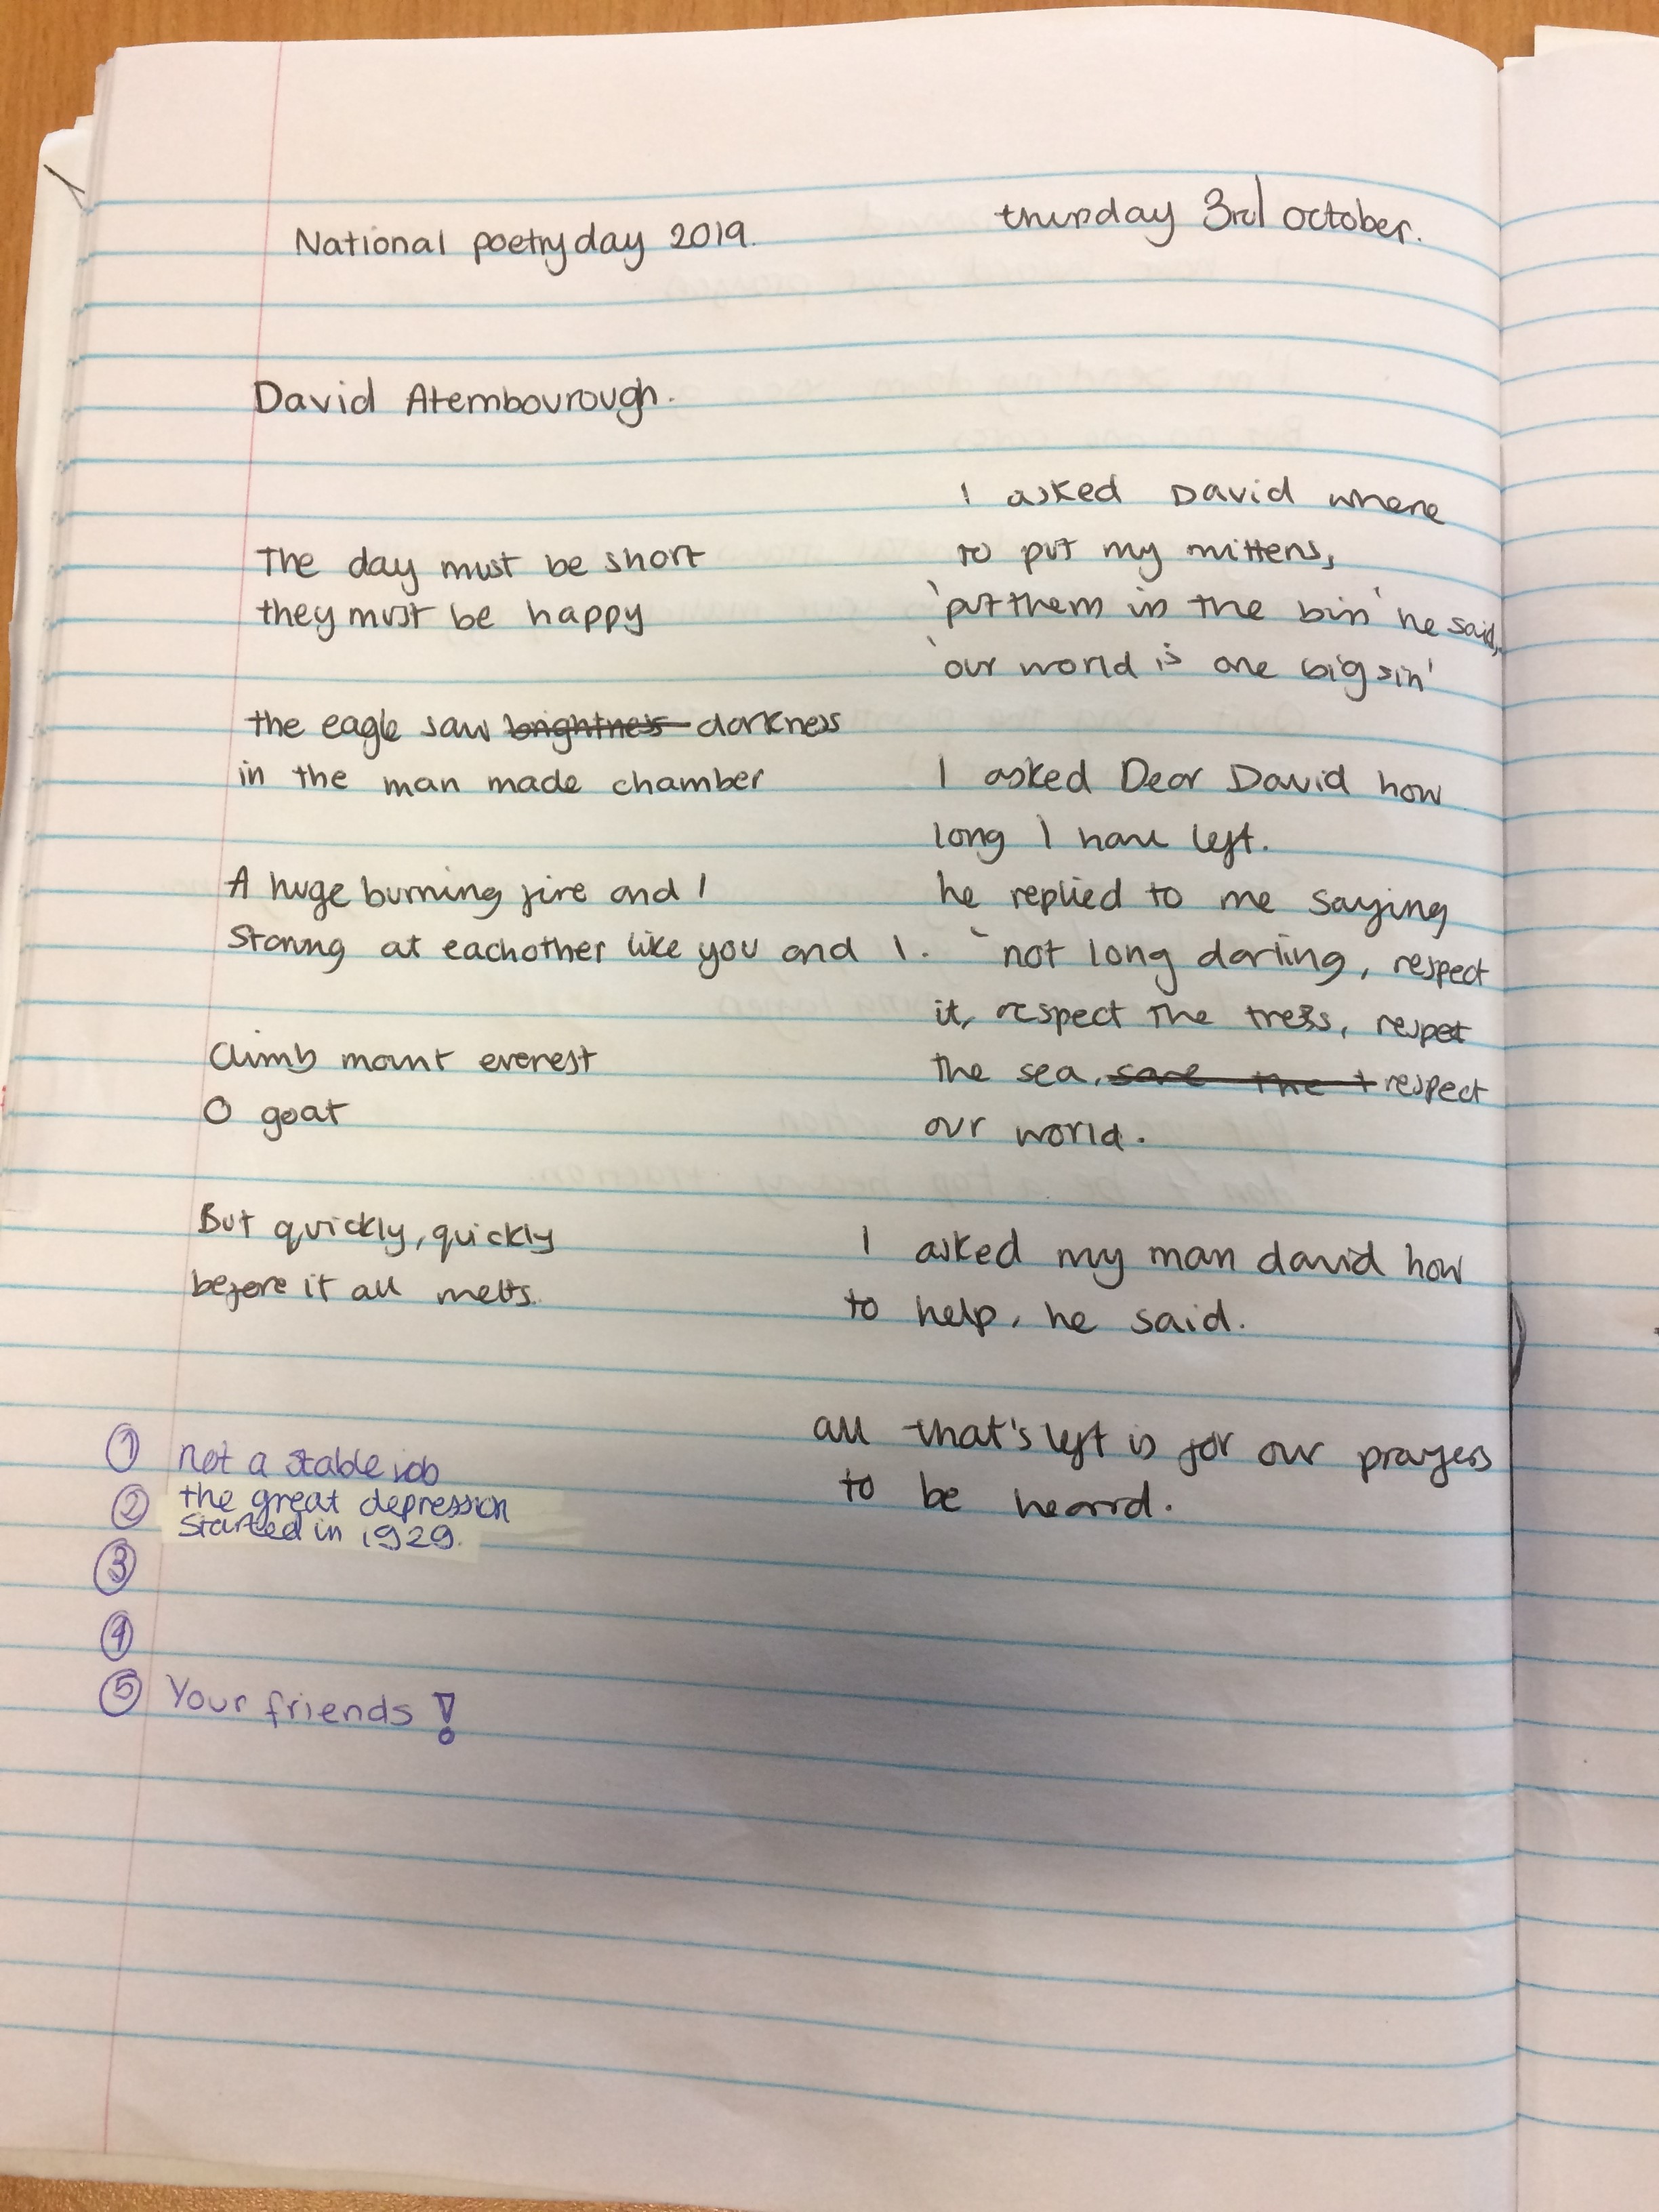 National poetry day 2019.
thursday 3rd october.
David Atembourough.
The day must be short
they must be happy
the eagle saw brightness darkness
in the man made chamber
A huge burning fire and I
Staring at eachother like you and I.
Climb mount everest
O goat
But quickly, quickly
before it all melts.
I asked David where
to put my mittens,
'put them in the bin' he said,
'our world is one big sin'
I asked Dear David how
long I have left.
he replied to me saying
'not long darling, respect
it, respect the trees, respect
the sea, save the t respect
our world.
I asked my man david how
to help, he said.
all that's left is for our prayers
to be heard.
① not a stable job
② the great depression
started in 1929.
③
④
⑤ Your friends!